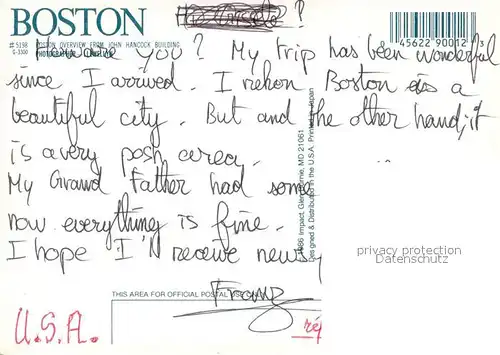 BOSTON
?
# 5198 BOSTON OVERVIEW FROM JOHN HANCOCK BUILDING
G-3300 PHOTOGRAPHER
0 45622 90012 3
are you? My trip has been wonderful
since I arrived. I rekon Boston is a
beautiful city. But and the other hand, it
is a very posh area.
My Grand Father had some
now everything is fine.
I hope I'll receive news,
Franz
1986 Impact, Glen Burnie, MD 21061
Designed & Distributed in the U.S.A. Printed in Japan
privacy protection
Datenschutz
THIS AREA FOR OFFICIAL POSTAL USE ONLY
U.S.A.
rép